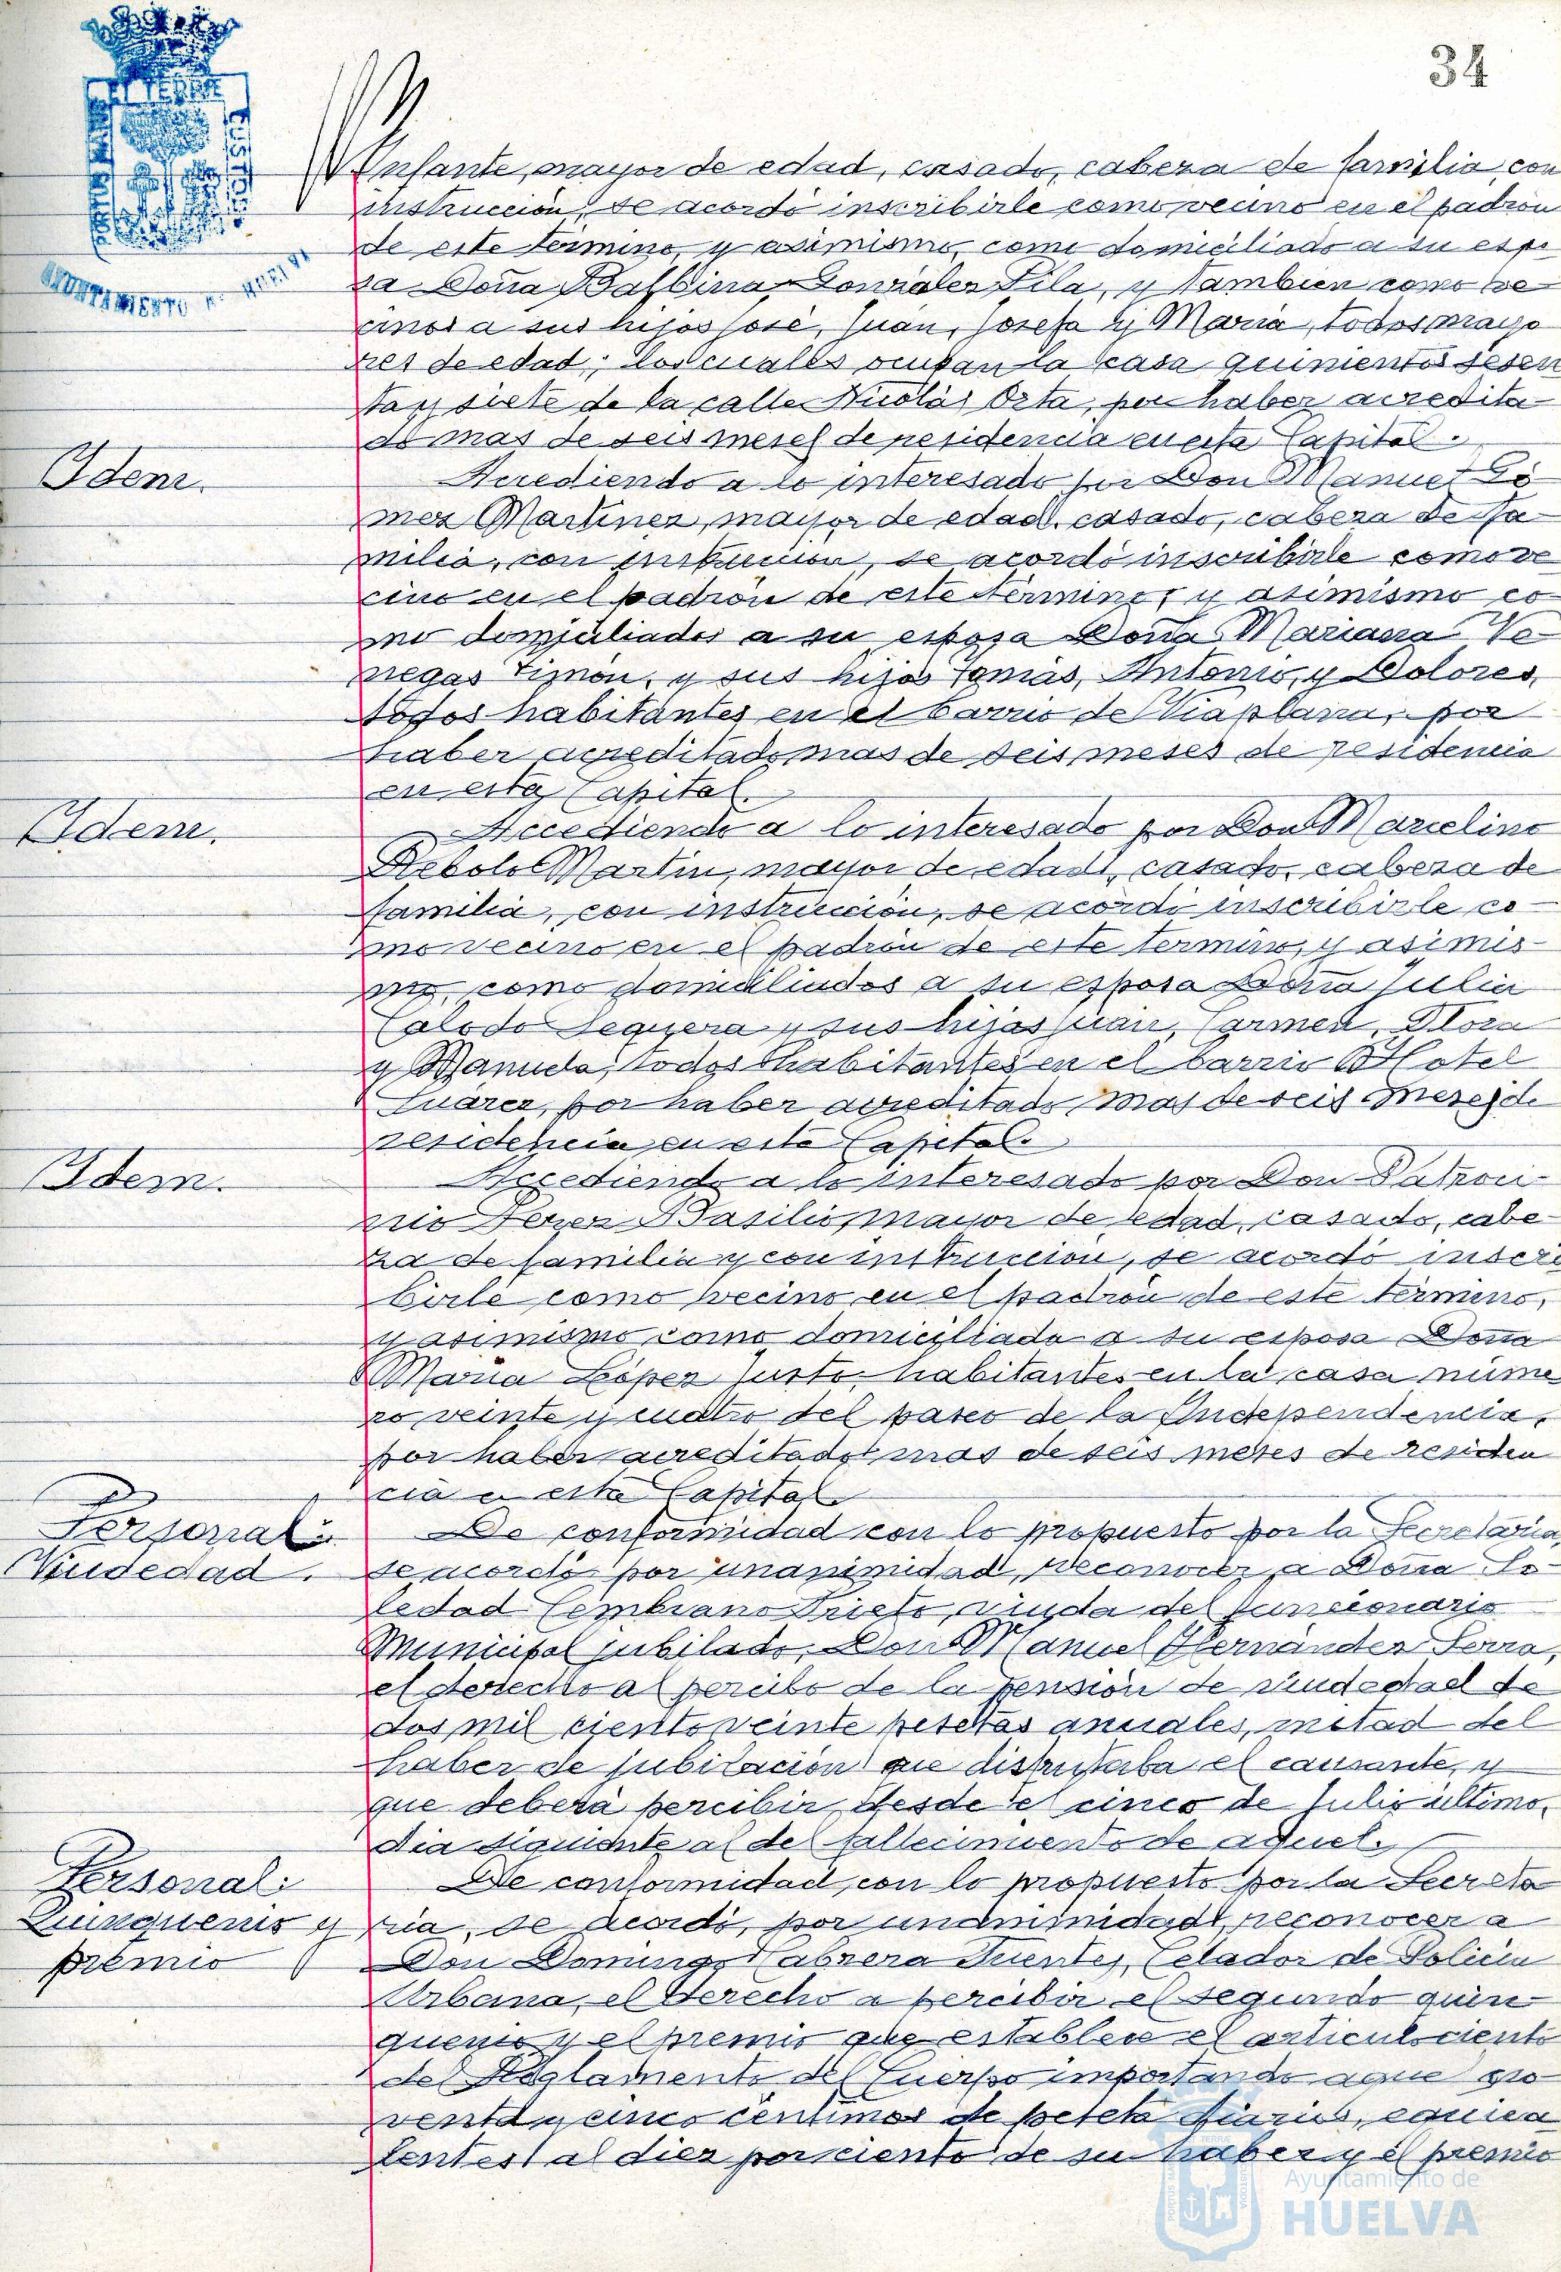 34
Infante, mayor de edad, casado, cabeza de familia, con
instrucción, se acordó inscribirle como vecino en el padrón
de este término, y asimismo, como domiciliado a su espo
sa Doña Balbina Gonzalez Pila, y tambien como ve
cinos a sus hijos José, Juan, Josefa y Maria, todos mayo
res de edad; los cuales ocupan la casa quinientos sesen
ta y siete de la calle Nicolás Orta, por haber acredita
do mas de seis meses de residencia en esta Capital.
Idem.
Accediendo a lo interesado por Don Manuel Gó
mez Martinez, mayor de edad, casado, cabeza de fa-
milia, con instrucción, se acordó inscribirle como ve
cino en el padrón de este término, y asimismo co-
mo domiciliados a su esposa Doña Mariana Ve-
negas Limón, y sus hijos Tomás, Antonio, y Dolores,
todos habitantes en el barrio de Viaplana, por
haber acreditado mas de seis meses de residencia
en esta Capital.
Idem.
Accediendo a lo interesado por Don Marcelino
Rebolo Martin, mayor de edad, casado, cabeza de
familia, con instrucción, se acordó inscribirle co-
mo vecino en el padrón de este termino, y asimis-
mo, como domiciliados a su esposa Doña Julia
y sus hijos Juan, Carmen, Flora
y Manuela, todos habitantes en el barrio Hotel
Suárez, por haber acreditado mas de seis meses de
residencia en esta Capital.
Idem.
Accediendo a lo interesado por Don Patroci-
nio Perez Basilio, mayor de edad, casado, cabe-
za de familia y con instruccion, se acordó inscri
birle como vecino en el padrón de este término,
y asimismo como domiciliada a su esposa Doña
Maria López Justo, habitantes en la casa núme
ro veinte y cuatro del paseo de la Independencia,
por haber acreditado mas de seis meses de residen
cia en esta Capital.
Personal:
Viudedad.
De conformidad con lo propuesto por la Secretaria,
se acordó por unanimidad, reconocer a Doña So-
ledad Cembrano Prieto, viuda del funcionario
Municipal jubilado, Don Manuel Hernández Serra,
el derecho al percibo de la pensión de viudedad de
dos mil ciento veinte pesetas anuales, mitad del
haber de jubilación que disfrutaba el causante, y
que deberá percibir desde el cinco de Julio último,
dia siguiente al del fallecimiento de aquel.
Personal:
Quinquenio y
premio
De conformidad con lo propuesto por la Secreta
ria, se acordó, por unanimidad, reconocer a
Don Domingo Cabrera Fuentes, Celador de Policia
Urbana, el derecho a percibir el segundo quin
quenio y el premio que establece el articulo ciento
del Reglamento del Cuerpo importando aquel no
venta y cinco céntimos de peseta diarios, equiva
lentes al diez por ciento de su haber y el premio
AYUNTAMIENTO DE HUELVA
Ayuntamiento de
HUELVA